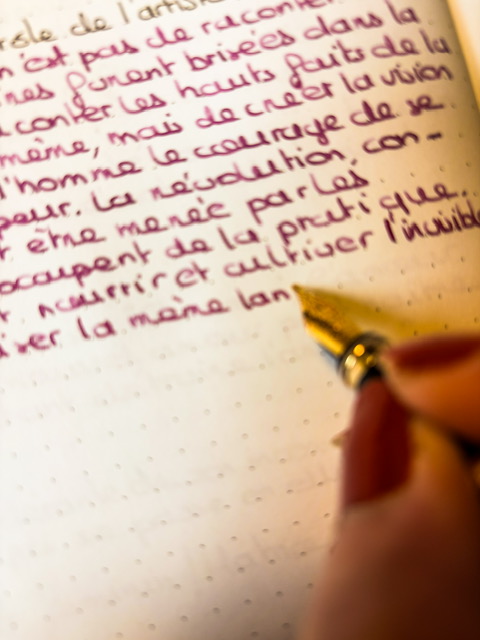 rôle de l'artiste
n'est pas de raconter
nes furent brisées dans la
conter les hauts faits de la
même, mais de créer la vision
l'homme le courage de se
peur. La révolution, con-
t être menée par les
occupent de la pratique.
t nourrir et cultiver l'invisible
iver la même lan